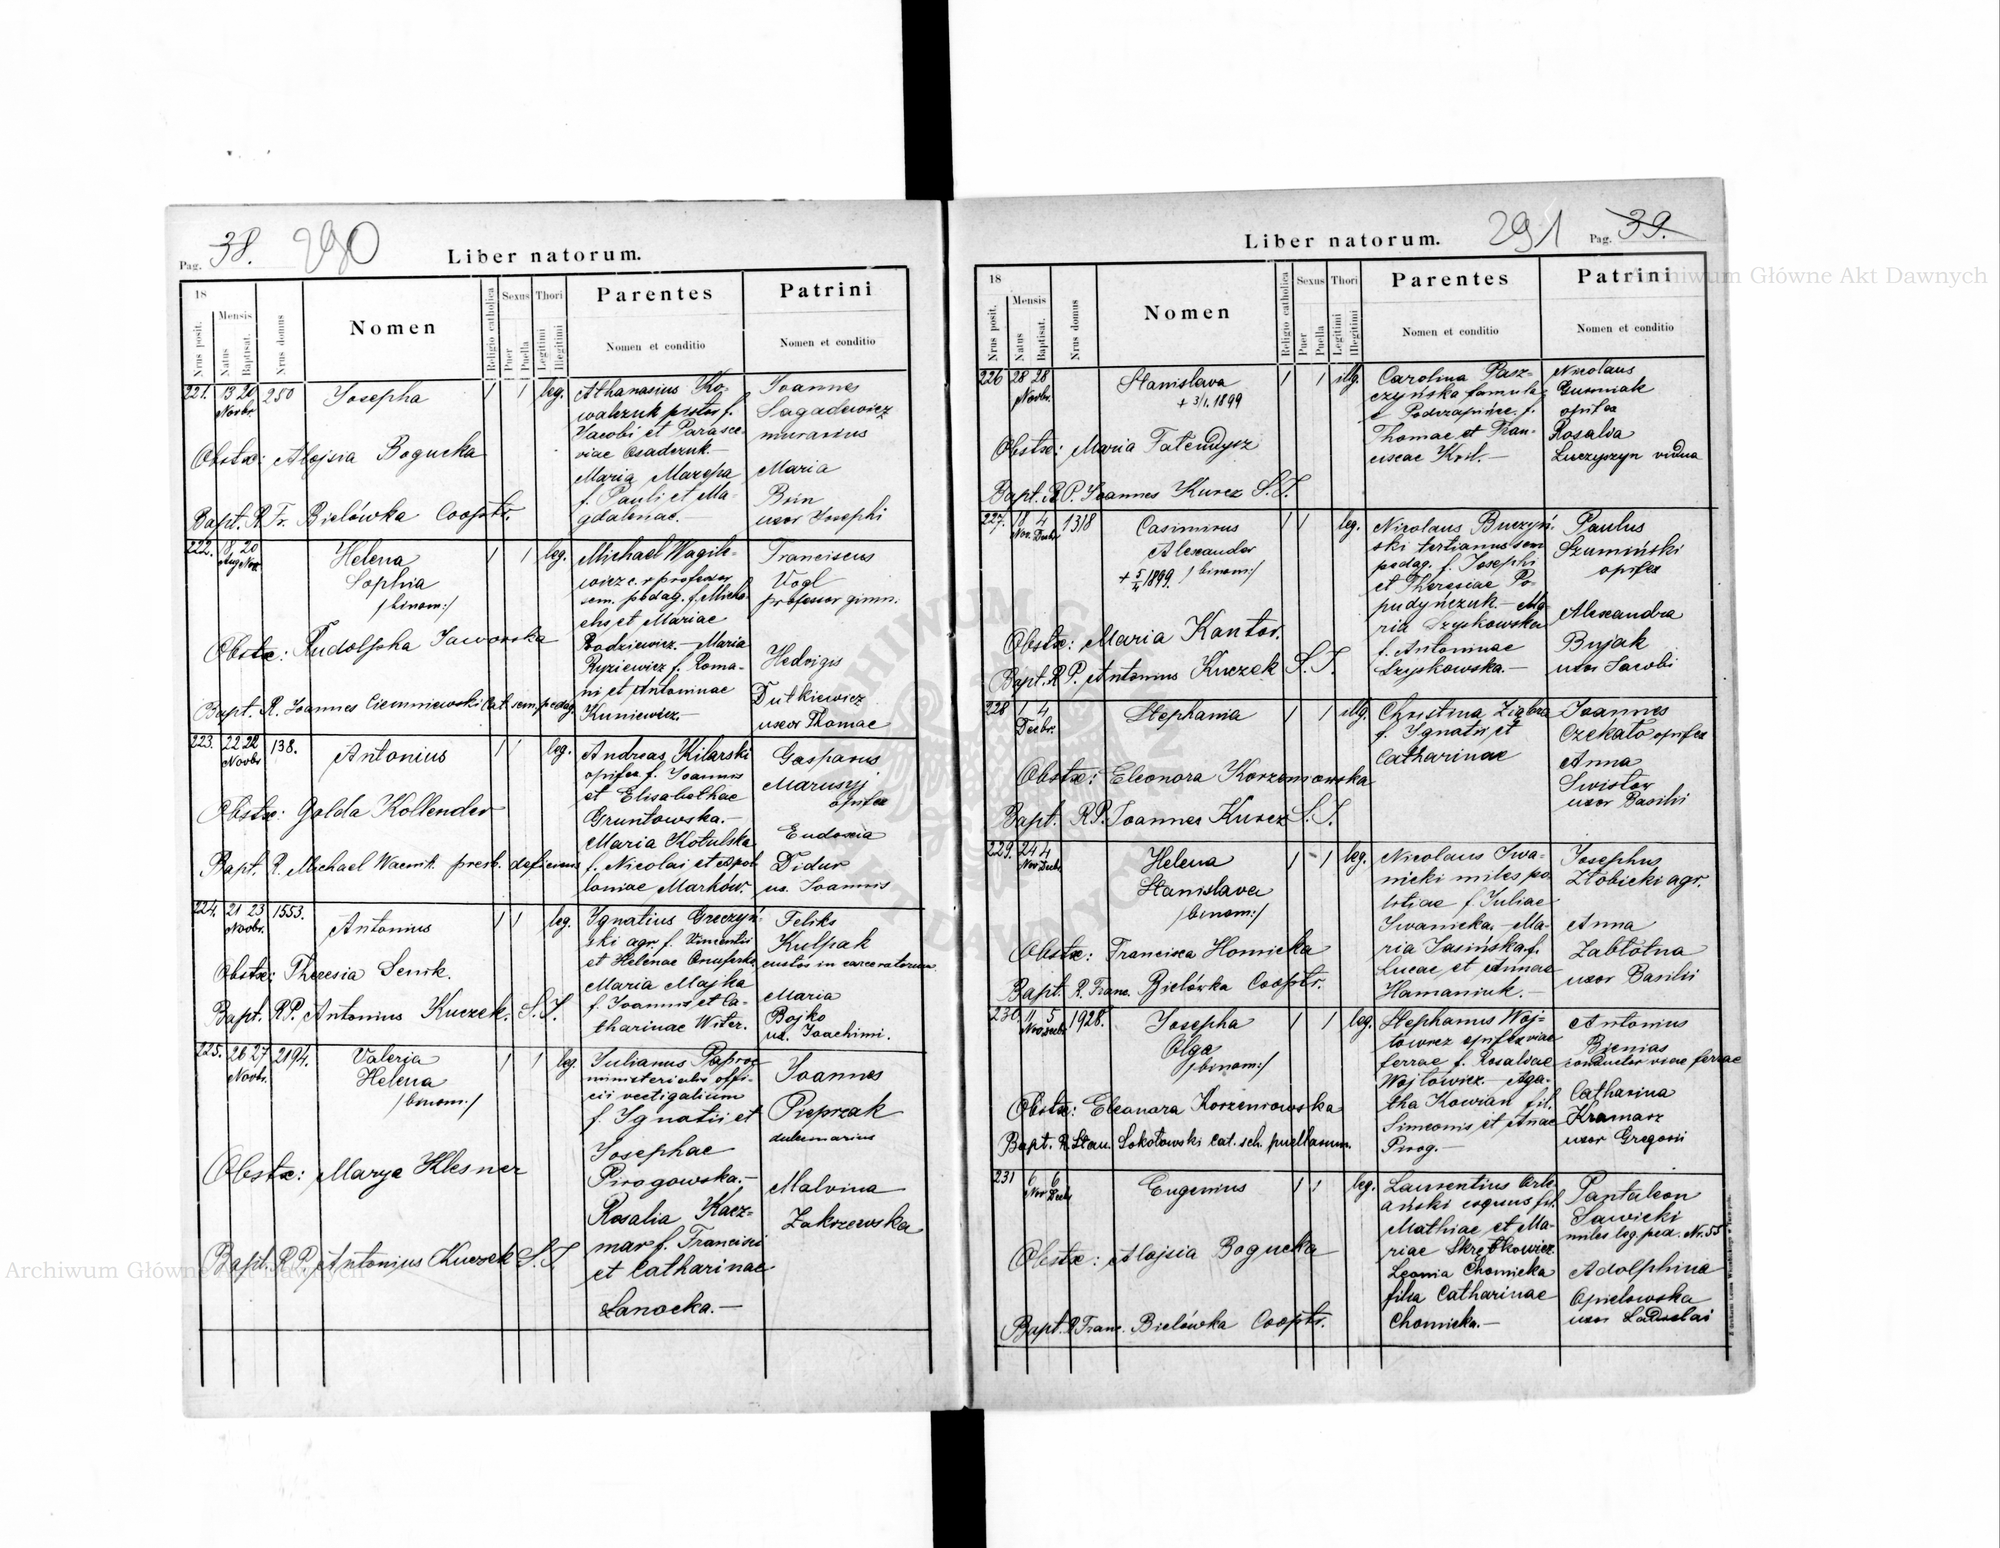 Pag. 38. 290 Liber natorum.
18 Mensis Nomen Sexus Thori Parentes Patrini
Nrus posit. Natus Baptisat. Nrus domus Religio catholica Puer Puella Legitimi Illegitimi Nomen et conditio Nomen et conditio
221. 13 20 Novbr. 250 Josepha 1 1 leg.
Athanasius Ko-
walczuk pistor f.
Jacobi et Parasce-
viae Osadczuk.-
Maria Mazepa
f. Pauli et Ma-
gdalenae.
Joannes
Sagadewicz
murarius
Maria
Brin
uxor Josephi
Obstx: Alojsia Bogucka
Bapt. R. Fr. Bielówka Cooptr.
222. 18 20 Aug Nov.
Helena
Sophia
/binom:/
1 1 leg.
Michael Wagile-
wicz c. r. professor
sem. pedag. f. Micha-
elis et Mariae
Rodziewicz.- Maria
Ryziewicz f. Roma-
ni et Antoninae
Kuniewicz.-
Franciscus
Vogl
professor gimn:
Hedvigis
Dutkiewicz
uxor Thomae
Obstx: Rudolpha Jaworska
Bapt. R. Joannes Ciemniewski Cat. sem. pedag.
223. 22 22 Novbr. 138. Antonius 1 1 leg.
Andreas Kilarski
opifex f. Joannis
et Elisabethae
Gruntowska.-
Maria Kotulska
f. Nicolai et Apol-
loniae Marków.
Gasparus
Marusyj
opifex
Eudoxia
Didur
ux. Joannis
Obstx: Golda Kollender
Bapt. R. Michael presb. deficiens
224. 21 23 Novbr. 1553. Antonius 1 1 leg.
Ignatius Greczyń-
ski agr. f. Vincentii
et Helenae
Maria Majka
f. Joannis et Ca-
tharinae Witer.
Feliks
Kulpak
custos in carceratorum
Maria
Bojko
ux. Joachimi.
Obstx: Theresia Senik.
Bapt. R.P. Antonius Kuczek. S.J.
225. 26 27 Novbr. 2194.
Valeria
Helena
/binom:/
1 1 leg.
Julianus Paproc
ministerialis offi-
cii vectigalium
f. Ignatii et
Josephae
Pirogowska.-
Rosalia Kacz-
mar f. Francisci
et Catharinae
Sanocka.-
Joannes
Pieprzak
Malvina
Zakrzewska
Obstx: Marya Klesner
Bapt. R.P. Antonius Kuczek S.J.
Liber natorum. 291 Pag. 39.
18 Mensis Nomen Sexus Thori Parentes Patrini
Nrus posit. Natus Baptisat. Nrus domus Religio catholica Puer Puella Legitimi Illegitimi Nomen et conditio Nomen et conditio
226 28 28 Novbr. Stanislava 1 1 illg.
+ 3/1. 1899
Carolina Pasz-
czyńska famula
f.
Thomae et Fran-
ciscae Król.-
Nicolaus
opifex
Rosalia
Luczyszyn vidua
Obstx: Maria Fatendysz
Bapt. R.P. Joannes Kurcz S.J.
227. 18 4 Nov. Decbr. 1318
Casimirus
Alexander
+ 5/4 1899. /binom:/
1 1 leg.
Nicolaus Buczyń-
ski tertianus sem
pedag. f. Josephi
et Theresiae Po-
pudyńczuk.- Ma-
ria Szyskowska
f. Antoninae
Szyskowska.-
Paulus
Szumiński
opifex
Alexandra
Bujak
uxor Jacobi
Obstx: Maria Kantor.
Bapt. R.P. Antonius Kuczek S.J.
228 1 4 Decbr. Stephania 1 1 illg.
Christina Ziębra
f. Ignatii et
Catharinae
Joannes
Czekało opifex
Anna
Swistor
uxor Basilii
Obstx: Eleonora Korzeniowska
Bapt. R.P. Joannes Kurcz S.J.
229. 24 4 Nov Decbr.
Helena
Stanislava
/binom:/
1 1 leg.
Nicolaus Iwa-
nicki miles po-
litiae f. Juliae
Iwanicka.- Ma-
ria Jasińska f.
Lucae et Annae
Hamaniuk.-
Josephus
Złobicki agr.
Anna
Zabłotna
uxor Basilii
Obstx: Francisca Homicka
Bapt. R. Franc. Bielówka Cooptr.
230. 11 5 Nov Decbr 1928.
Josepha
Olga
/binom:/
1 1 leg.
Stephanus Woj-
towicz opifex viae
ferrae f. Rosaliae
Wojtowicz.- Aga-
tha Kowian fil.
Simeonis et Annae
Pirog.-
Antonius
Bienias
conductor viae ferrae
Catharina
Kramarz
uxor Gregorii
Obstx: Eleanora Korzeniowska
Bapt. R. Stan. Sokołowski Cat. sch. puellarum.
231 6 6 Nov Decbr Eugenius 1 1 leg.
Laurentius Orle-
ański coquus fil.
Mathiae et Ma-
riae Skrętkowicz.
Leonia Chomicka
filia Catharinae
Chomicka.-
Pantaleon
Sawicki
miles leg. ped. Nr. 55
Adolphina
Opielowska
uxor Ladislai
Obstx: Alojsia Bogucka
Bapt. R Franc. Bielówka Cooptr.
Archiwum Główne Akt Dawnych
Archiwum Główne Akt Dawnych